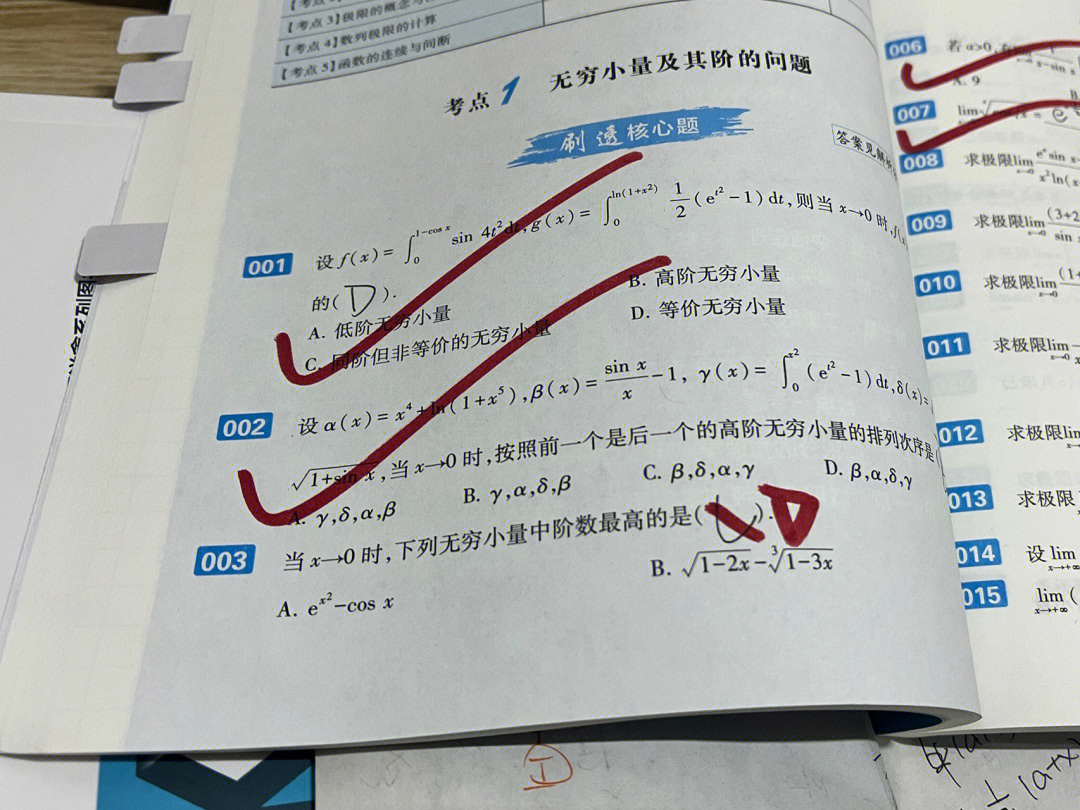 【考点3】极限的概念与
【考点4】数列极限的计算
【考点5】函数的连续与间断
考点1 无穷小量及其阶的问题
刷透核心题
答案见解析
001 设f(x)=∫₀^{1-cos x} sin 4t²dt,g(x)=∫₀^{ln(1+x²)} 1/2(e^{t²}-1)dt,则当x→0时,f(x)
的(D).
A. 低阶无穷小量 B. 高阶无穷小量
C. 同阶但非等价的无穷小量 D. 等价无穷小量
002 设α(x)=x⁴+ln(1+x⁵),β(x)=sin x/x-1,γ(x)=∫₀^{x²}(e^{t²}-1)dt,δ(x)=
√(1+sin x),当x→0时,按照前一个是后一个的高阶无穷小量的排列次序是(
A. γ,δ,α,β B. γ,α,δ,β C. β,δ,α,γ D. β,α,δ,γ
003 当x→0时,下列无穷小量中阶数最高的是( ). D
A. e^{x²}-cos x B. √(1-2x)-∛(1-3x)
006 若a>0,
A. 9 B
007 lim
008 求极限lim_{x→0} e^x sin x-
x²ln(x
009 求极限lim_{x→0} (3+2
sin
010 求极限lim_{x→0} (1+
011 求极限lim
012 求极限lim
013 求极限
014 设lim_{x→+∞}
015 lim_{x→+∞} (